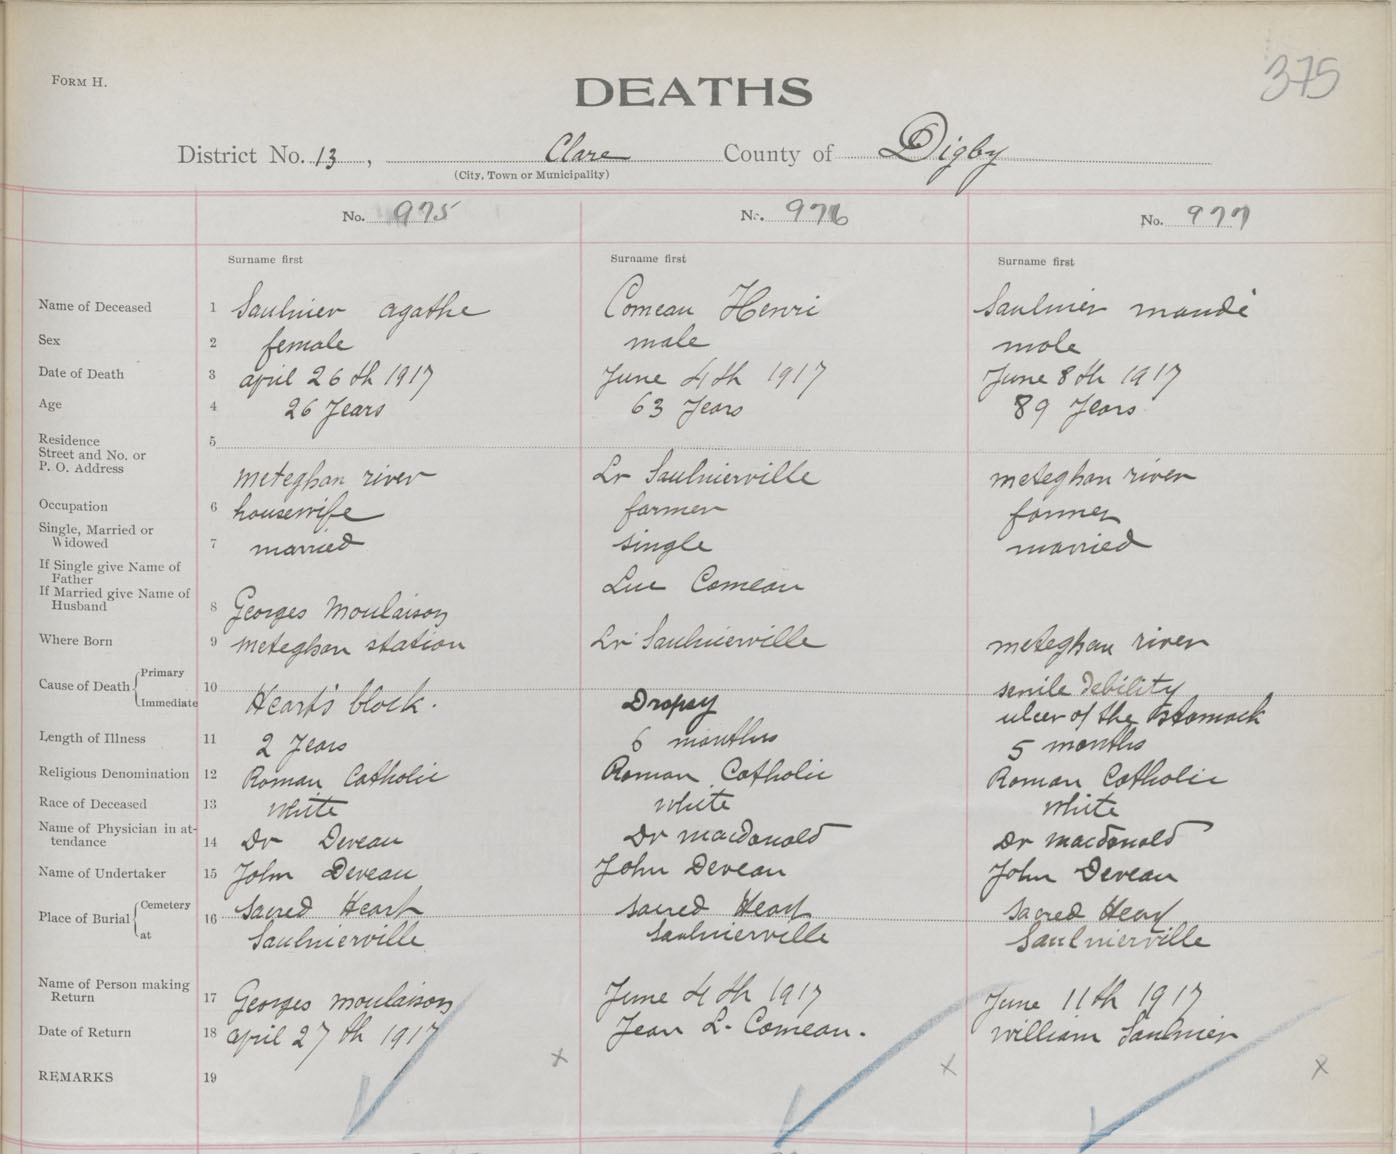 375
FORM H.
DEATHS
District No. 13, Clare County of Digby
(City, Town or Municipality)
No. 975 No. 976 No. 977
Surname first Surname first Surname first
Name of Deceased 1 Saulnier agathe Comeau Henri Saulnier mandé
Sex 2 female male male
Date of Death 3 april 26th 1917 June 4th 1917 June 8th 1917
Age 4 26 Years 63 Years 89 Years
Residence 5
Street and No. or
P. O. Address
meteghan river Lr Saulnierville meteghan river
Occupation 6 housewife farmer farmer
Single, Married or
Widowed 7 married single married
If Single give Name of
Father Luc Comeau
If Married give Name of
Husband 8 Georges Moulaison
Where Born 9 meteghan station Lr Saulnierville meteghan river
Cause of Death Primary 10 senile debility
Immediate Heart's block. Dropsy ulcer of the stomack
Length of Illness 11 2 Years 6 months 5 months
Religious Denomination 12 Roman Catholic Roman Catholic Roman Catholic
Race of Deceased 13 white white white
Name of Physician in at-
tendance 14 Dr Deveau Dr macdonald Dr macdonald
Name of Undertaker 15 John Deveau John Deveau John Deveau
Place of Burial Cemetery 16 Sacred Heart sacred Heart Sacred Heart
at Saulnierville Saulnierville Saulnierville
Name of Person making
Return 17 Georges moulaison June 4th 1917 June 11th 1917
Date of Return 18 april 27th 1917 Jean L. Comeau. William Saulnier
x x x
REMARKS 19